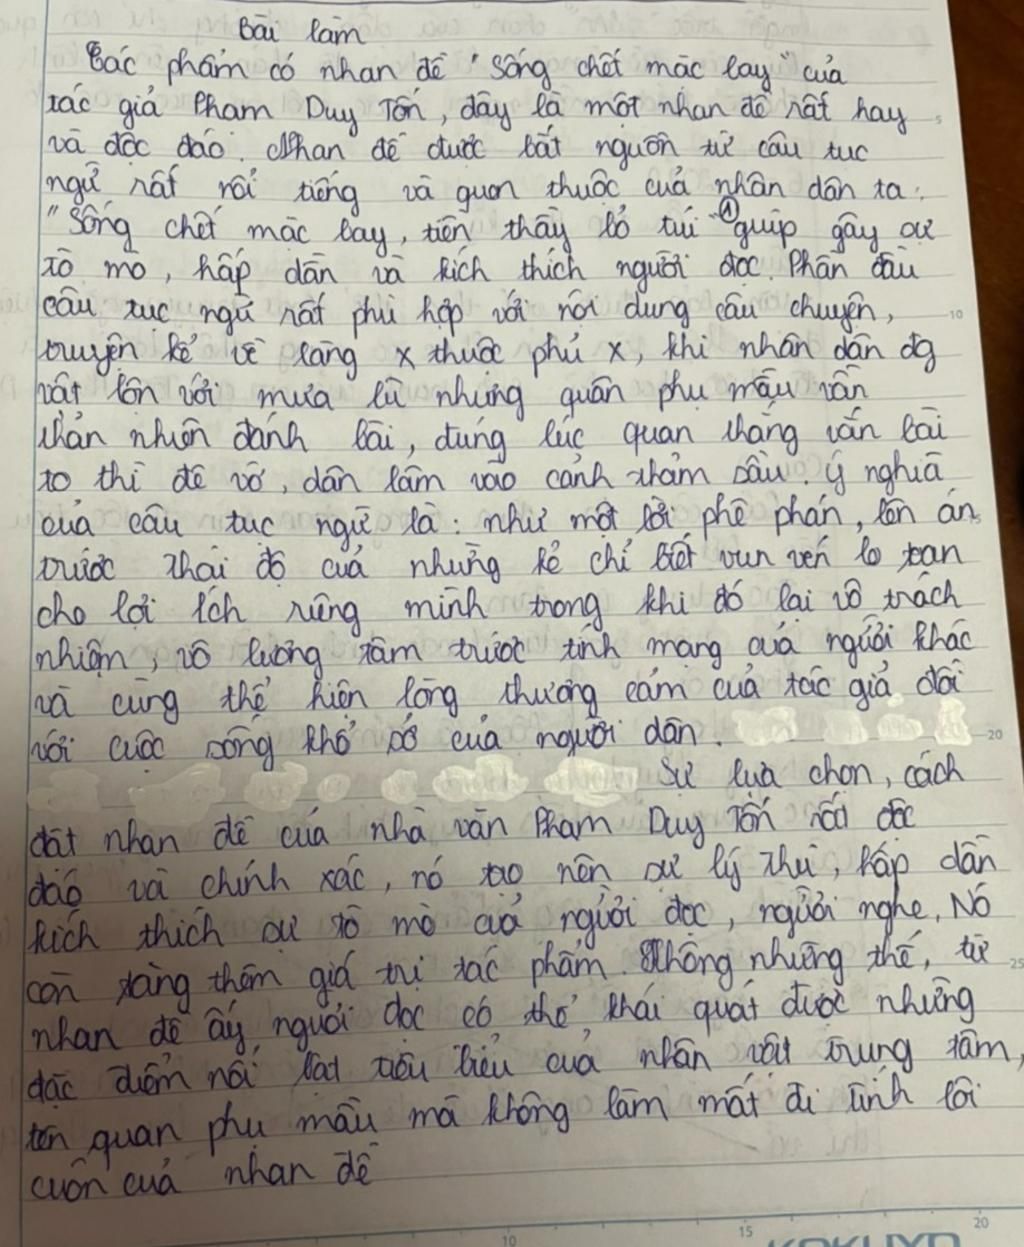 Bài làm
Tác phẩm có nhan đề "Sống chết mặc bay" của
tác giả Phạm Duy Tốn, đây là một nhan đề rất hay
và độc đáo. Nhan đề được bắt nguồn từ câu tục
ngữ rất nổi tiếng và quen thuộc của nhân dân ta:
"Sống chết mặc bay, tiền thầy bỏ túi" giúp gây sự
tò mò, hấp dẫn và kích thích người đọc. Phần đầu
câu tục ngữ rất phù hợp với nội dung câu chuyện,
truyện kể về làng X thuộc phủ X, khi nhân dân đg
vật lộn với mưa lũ nhưng quan phụ mẫu vẫn
thản nhiên đánh bài, đúng lúc quan thắng ván bài
to thì đê vỡ, dân lâm vào cảnh thảm sầu. Ý nghĩa
của câu tục ngữ là: như một lời phê phán, lên án
trước thái độ của những kẻ chỉ biết vun vén lo toan
cho lợi ích riêng mình trong khi đó lại vô trách
nhiệm, vô lương tâm trước tính mạng của người khác
và cũng thể hiện lòng thương cảm của tác giả đối
với cuộc sống khổ sở của người dân.
Sự lựa chọn, cách
đặt nhan đề của nhà văn Phạm Duy Tốn rất độc
đáo và chính xác, nó tạo nên sự lý thú, hấp dẫn
kích thích sự tò mò của người đọc, người nghe. Nó
còn tăng thêm giá trị tác phẩm. Không những thế, từ
nhan đề ấy, người đọc có thể khái quát được những
đặc điểm nổi bật tiêu biểu của nhân vật trung tâm,
tên quan phụ mẫu mà không làm mất đi tính lôi
cuốn của nhan đề
5
10
20
25
10
15
20
KOKUYO